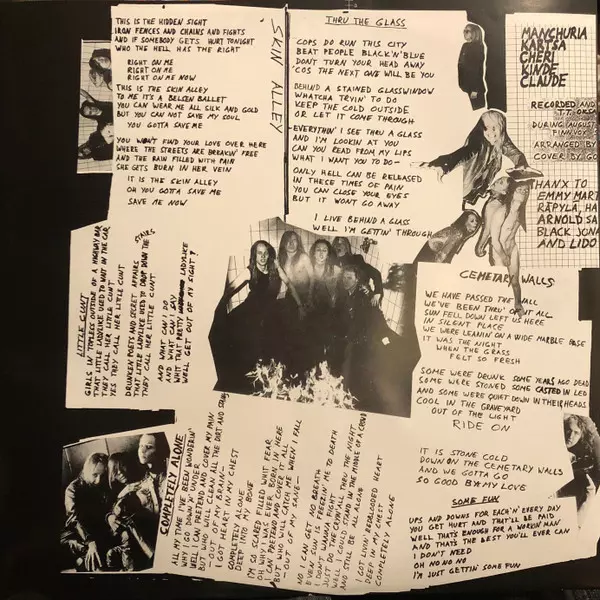 THIS IS THE HIDDEN SIGHT
IRON FENCES AND CHAINS AND FIGHTS
AND IF SOMEBODY GETS HURT TONIGHT
WHO THE HELL HAS THE RIGHT
RIGHT ON ME
RIGHT ON ME
RIGHT ON ME NOW
THIS IS THE SKIN ALLEY
TO ME IT'S A BELZEN BALLET
YOU CAN WEAR ME ALL SILK AND GOLD
BUT YOU CAN NOT SAVE MY SOUL
YOU GOTTA SAVE ME
YOU WON'T FIND YOUR LOVE OVER HERE
WHERE THE STREETS ARE BREAKIN' FREE
AND THE RAIN FILLED WITH PAIN
SHE GETS BURN IN HER VEIN
IT IS THE SKIN ALLEY
OH YOU GOTTA SAVE ME
SAVE ME NOW
SKIN ALLEY
THRU THE GLASS
COPS DO RUN THIS CITY
BEAT PEOPLE BLACK'N'BLUE
DON'T TURN YOUR HEAD AWAY
'COS THE NEXT ONE WILL BE YOU
BEHIND A STAINED GLASSWINDOW
WHATCHA TRYIN' TO DO
KEEP THE COLD OUTSIDE
OR LET IT COME THROUGH
EVERYTHIN' I SEE THRU A GLASS
AND I'M LOOKIN AT YOU
CAN YOU READ FROM MY LIPS
WHAT I WANT YOU TO DO-
ONLY HELL CAN BE RELEASED
IN THESE TIMES OF PAIN
YOU CAN CLOSE YOUR EYES
BUT IT WONT GO AWAY
I LIVE BEHIND A GLASS
WELL I'M GETTIN' THROUGH
MANCHURIA
KARTSA
CHERI
KINDE
CLAUDE
RECORDED AND
T.T. OKS
DURING AUGUST
FINNVOX
ARRANGED BY
COVER BY GO
THANX TO
EMMY MART
RÄPYLÄ, HA
ARNOLD SA
BLACK JONA
AND LIDO
LITTLE CUNT
GIRLS IN TOPLESS OUTSIDE OF A HIGHWAY BAR
THAT LITTLE LADYLICE USED TO WAIT IN THE CAR
THEY CALL HER LITTLE CUNT
YES THEY CALL HER LITTLE CUNT
DRUNKEN POETS AND SECRET AFFAIRS
THAT LITTLE LADYLICE USED TO DROP DOWN THE STAIRS
THEY CALL HER LITTLE CUNT
AND WHAT CAN I DO
AND WHAT CAN I SAY
WHIT THAT PRETTY LADYLICE
WE'LL GET OUT OF MY SIGHT?
CEMETARY WALLS
WE HAVE PASSED THE WALL
WE'VE BEEN THRU' OUT ALL
SUN FELL DOWN LEFT US HERE
IN SILENT PLACE
WE WERE LEANIN' ON A WIDE MARBLE BASE
IT WAS THE NIGHT
WHEN THE GRASS
FELT SO FRESH
SOME WERE DRUNK SOME YEARS AGO DEAD
SOME WERE STONED SOME CASTED IN LED
AND SOME WERE QUIET DOWN IN THEIR HEADS
COOL IN THE GRAVEYARD
OUT OF THE LIGHT
RIDE ON
IT IS STONE COLD
DOWN ON THE CEMETARY WALLS
AND WE GOTTA GO
SO GOOD BY MY LOVE
SOME FUN
UPS AND DOWNS FOR EACH'N' EVERY DAY
YOU GET HURT AND THAT'LL BE PAID
WELL THAT'S ENOUGH FOR A WORKIN' MAN
AND THAT'S THE BEST YOU'LL EVER CAN
I DON'T NEED
OH NO NO NO
I'M JUST GETTIN' SOME FUN
COMPLETELY ALONE
ALL MY TIME I'VE BEEN WONDERIN'
WHY I GO DOWN 'N' UNDER
WELL I PRETEND AND COVER MY PAIN
BUT WHO WILL CLEAN ALL THE DIRT AND
-OUT OF MY BRAIN-
I GOT HEART IN MY CHEST
COMPLETELY ALONE
DEEP INTO MY BONE
I'M SO SCARED FILLED WHIT FEAR
OH WHY WAS I EVER BORN IN HERE
I CAN PRETEND AND CONTROL ALL
BUT WHO WILL CATCH ME WHEN I FALL
-OUT OF MY SANE-
NO I CAN GET NO BREATH
EVEN THE SUN IS FREEZIN' ME TO DEATH
I DON'T WANNA FIGHT
JUST DO THE CRYIN' ALL THRU THE NIGHT
WELL I COULD STAND IN THE MIDDLE OF A CROWD
AND STILL BE ALL ALONE
I GOT A REDBLOODED HEART
DEEP IN MY CHEST
COMPLETELY ALONE